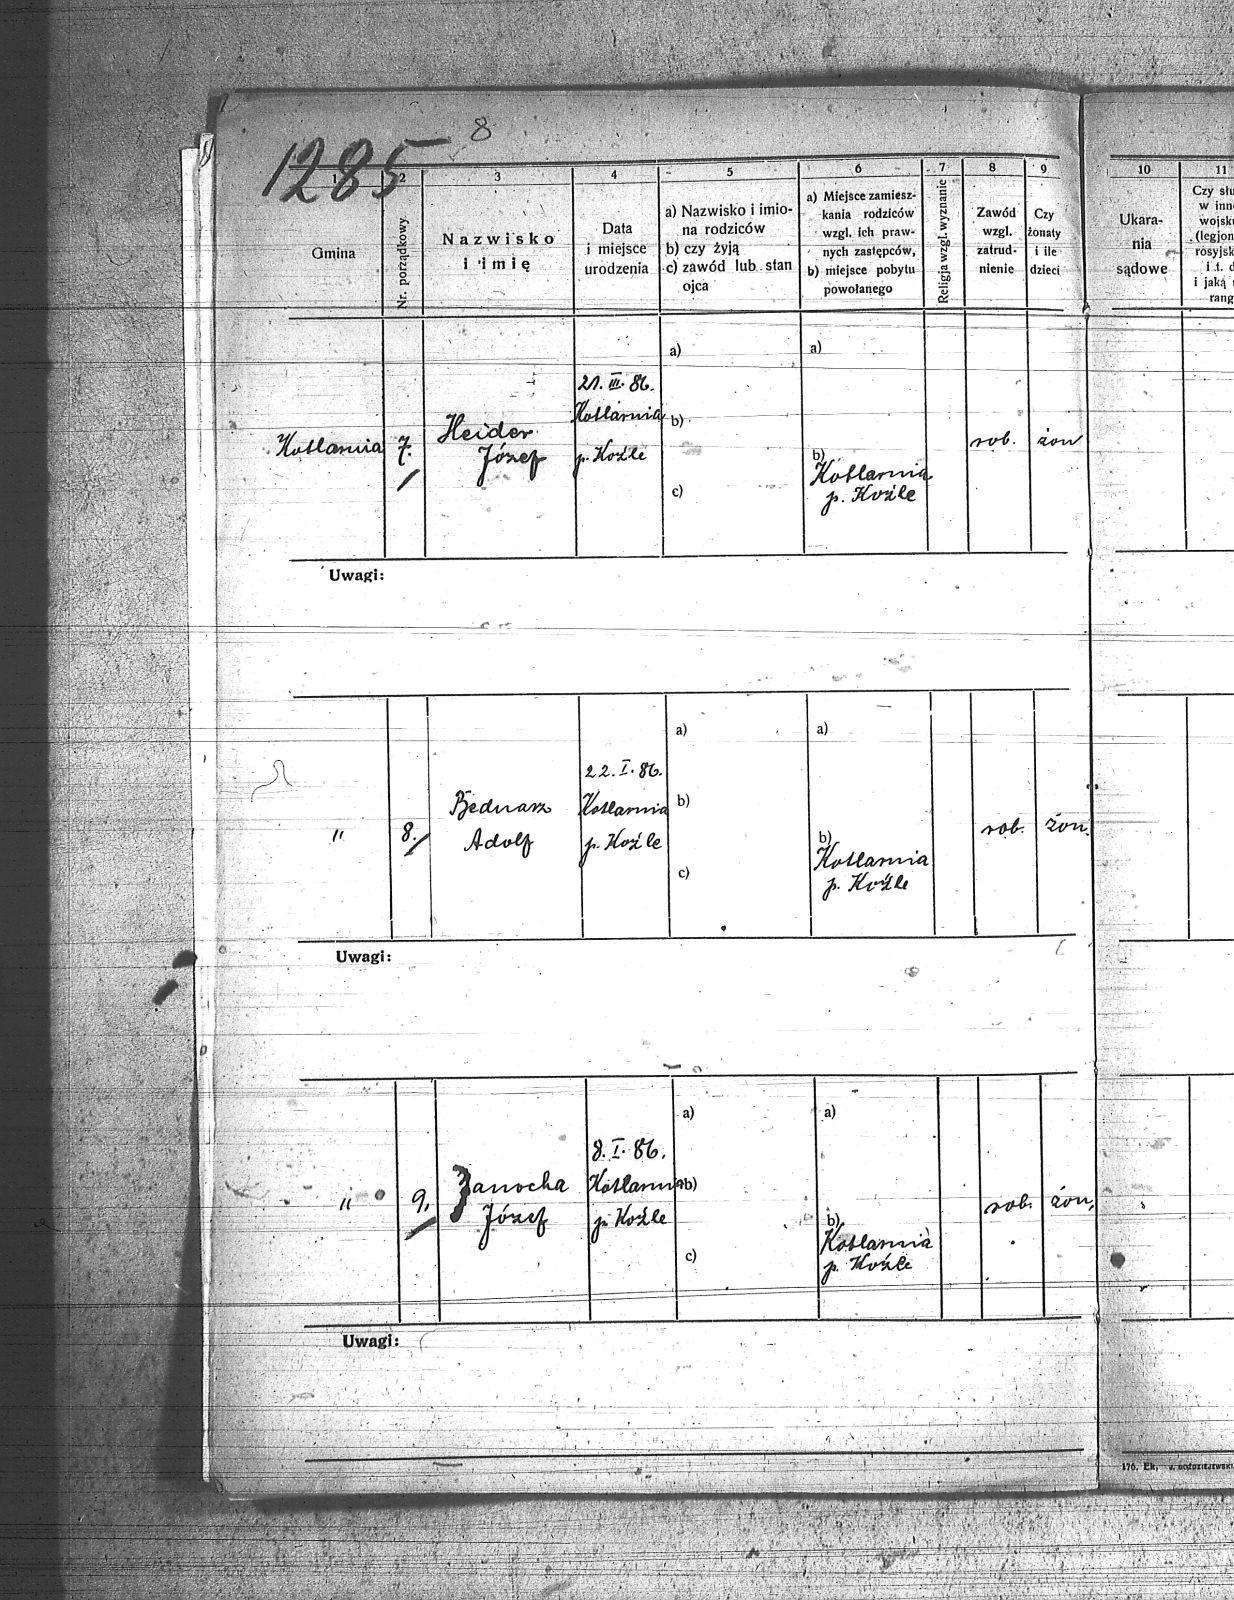 8
1285
1
2
3
4
5
6
7
8
9
10
11
Gmina
Nr. porządkowy
Nazwisko
i imię
Data
i miejsce
urodzenia
a) Nazwisko i imio-
na rodziców
b) czy żyją
c) zawód lub stan
ojca
a) Miejsce zamiesz-
kania rodziców
wzgl. ich praw-
nych zastępców,
b) miejsce pobytu
powołanego
Religja wzgl. wyznanie
Zawód
wzgl.
zatrud-
nienie
Czy
żonaty
i ile
dzieci
Ukara-
nia
sądowe
Czy słu
w inne
wojsku
(legjon
rosyjsk
i t. d
i jaką
rang
Kotlarnia
7.
Heider
Józef
21. III. 86.
Kotlarnia
p. Koźle
a)
b)
c)
a)
b)
Kotlarnia
p. Koźle
rob.
żon
Uwagi:
"
8.
Bednarz
Adolf
22. I. 86.
Kotlarnia
p. Koźle
a)
b)
c)
a)
b)
Kotlarnia
p. Koźle
rob.
żon.
Uwagi:
"
9.
Zanocha
Józef
8. I. 86.
Kotlarnia
p. Koźle
a)
b)
c)
a)
b)
Kotlarnia
p. Koźle
rob.
żon.
Uwagi:
176. Ek.